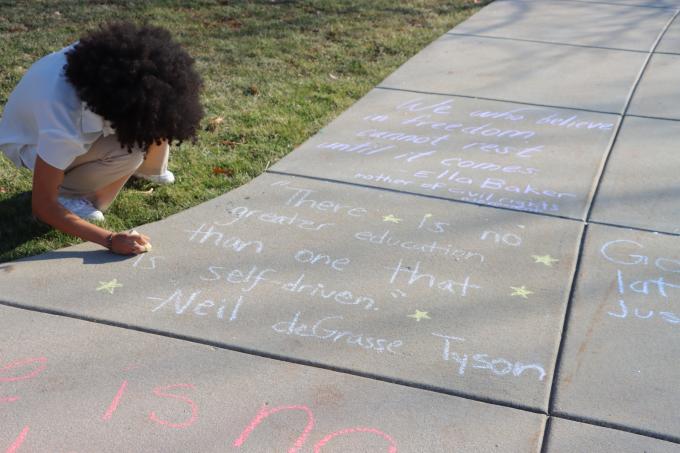 We who believe
in freedom
cannot rest
until it comes
- Ella Baker
mother of Civil
"There is no
greater education
than one that
is self-driven."
-Neil deGrasse Tyson
Go
lat
Jus
e is no